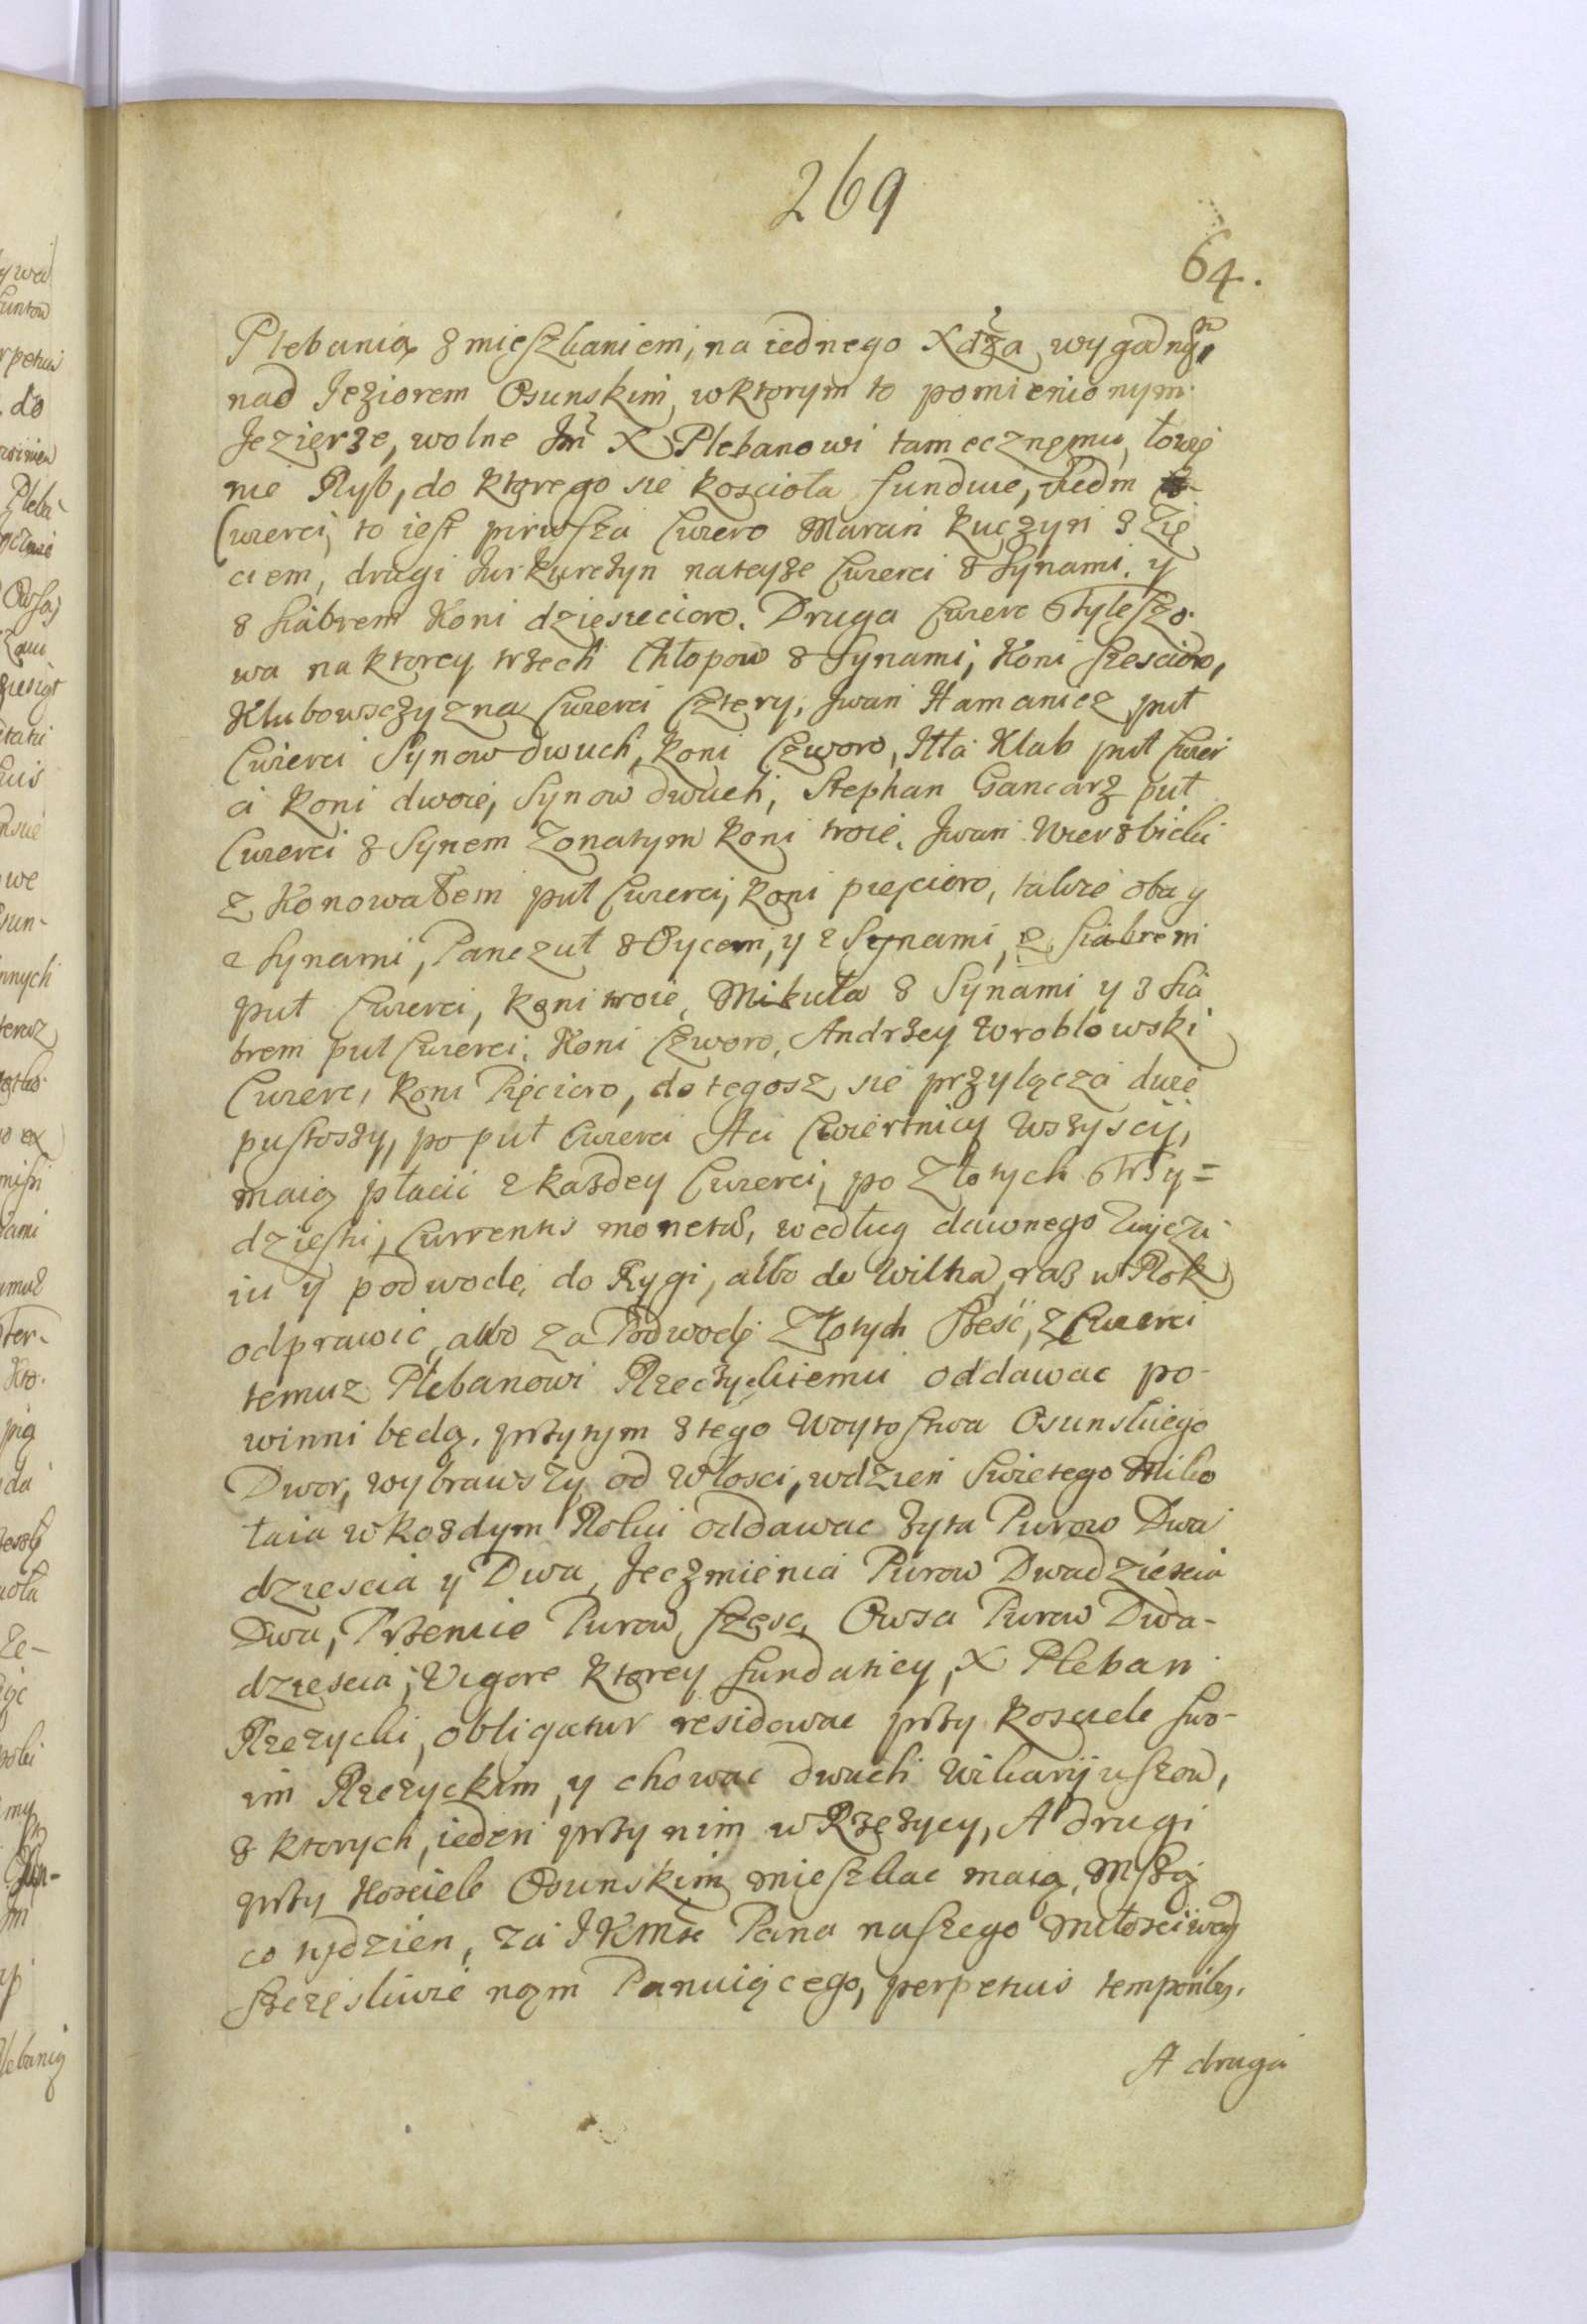 269
64.
Plebanią z mieszkaniem, na iednego Xdza wygadnym,
nad Jeziorem Osunskim, w ktorym to pomienionym
Jezierze, wolne Jm X Plebanowi tamecznemu, łowię
nie Ryb, do ktorego sie koscioła funduie, siedm
Cwierci, to iest pirwsza Cwierc Maran Kuczyn z Zię
ciem, drugi Jur Kurczyn na teyze Cwierci z Synami, y
z siabrem Koni dziesiecioro. Druga Cwierc Styleszo
wa na ktorey trzech Chłopow z Synami, Koni szescioro,
Klubowszczyzna Cwierci Cztery, Jwan Hamaniez puł
Cwierci Synow dwuch, koni Czworo, Jtta Klab puł Cwier
ci koni dwoie, Synow dwuch, Stephan Gancarz puł
Cwierci z Synem Zonatym koni troie. Jwan Wierzbicki
z Konowałem puł Cwierci, koni pięcioro, takze obay
z Synami, Panczuł z Oycem, y z Synami, z siabrem
puł Cwierci, koni troie, Mikuła z Synami y z sia
brem puł Cwierci. Koni Czworo, Andrzey Wroblowski
Cwierc, koni Pięcioro, do tegosz sie przyłącza dwie
pustoszy, po puł Cwierci Aci Cwiertnicy wszyscy,
maią płacic z kazdey Cwierci, po Złotych Trzy=
dziesti, Currentis moneta, według dawnego Zwycza
iu y podwode, do Rygi, albo do Wilna, raz w Rok
odprawic, albo za Podwodę Złotych szesc, z Cwierci
temuz Plebanowi Rzeczyckiemu oddawac po-
winni będą, przytym z tego Woytostwa Osunskiego
Dwor, wybrawszy od Włosci, w dzien Swietego Miko
łaia w kozdym Roku oddawac zyta Purow Dwa
dziescia y Dwa, Jeczmienia Purow Dwadziescia
Dwa, Pszenice Purow szesc, Owsa Purow Dwa-
dziescia, Vigore ktorey fundatiey, X Pleban
Rzezycki, obligatur residowac przy kosciele swo-
im Rzezyckim, y chowac dwuch Wikaryuszow,
z ktorych, ieden przy nim w Rzezycy, A drugi
przy Kosciele Osunskim mieszkac maią, Mszą
co tydzien, za JKMsc Pana naszego Miłosciwego
szczęsliwie nam Panuiącego, perpetuis temporibus,
A druga